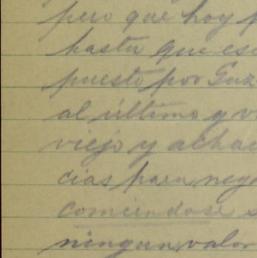 pero que hoy p
hasta que es
puesto por Guz
al último y v
viejo y achac
cias para nega
comiendose s
ningun valor